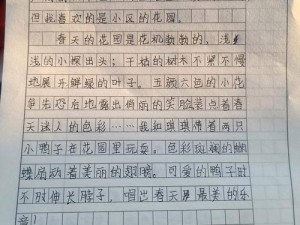 但我喜欢的是小区的花园。
春天的花园是花机勃勃的，浅
浅的小探出头；干枯的树木不紧不慢
地展开鲜绿的叶子。五颜六色的小花
争先恐后地露出俏丽的笑脸装点着春
天迷人的色彩……我和琪琪带着两只
小鸭子在花园里玩耍。色彩斑斓的蝴
蝶扇动着美丽的翅膀。可爱的鸭子时
不时伸长脖子，唱出春天里最美的乐
音！